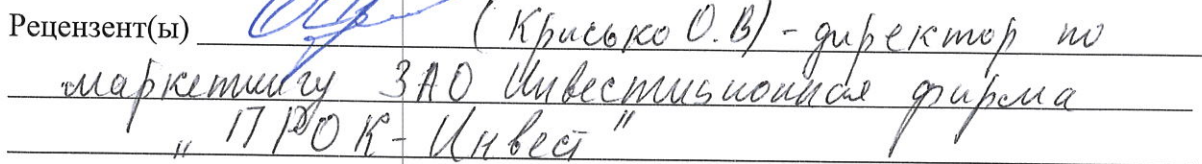 Рецензент(ы) (Крисько О.В) - директор по
маркетингу ЗАО Инвестиционная фирма
„ПРОК-Инвест"